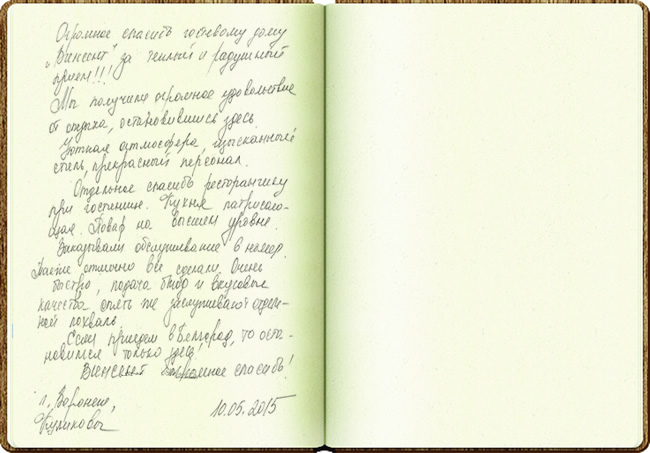 Огромное спасибо гостевому дому
„Винсент" за теплый и радушный
прием!!!
Мы получили огромное удовольствие
от отдыха, остановившись здесь
Уютная атмосфера, изысканный
стиль, прекрасный персонал.
Отдельное спасибо ресторанчику
при гостинице. Кухня потрясаю-
щая. Повар на высшем уровне.
Заказывали обслуживание в номер.
Также отлично все сделали. Очень
быстро, подача блюд и вкусовые
качества опять же заслуживают отдель-
ной похвалы
Если приедем в Белгород, то оста-
новимся только здесь!
Винсент огромное спасибо!
г. Воронеж,
Куликовы
10.05.2015